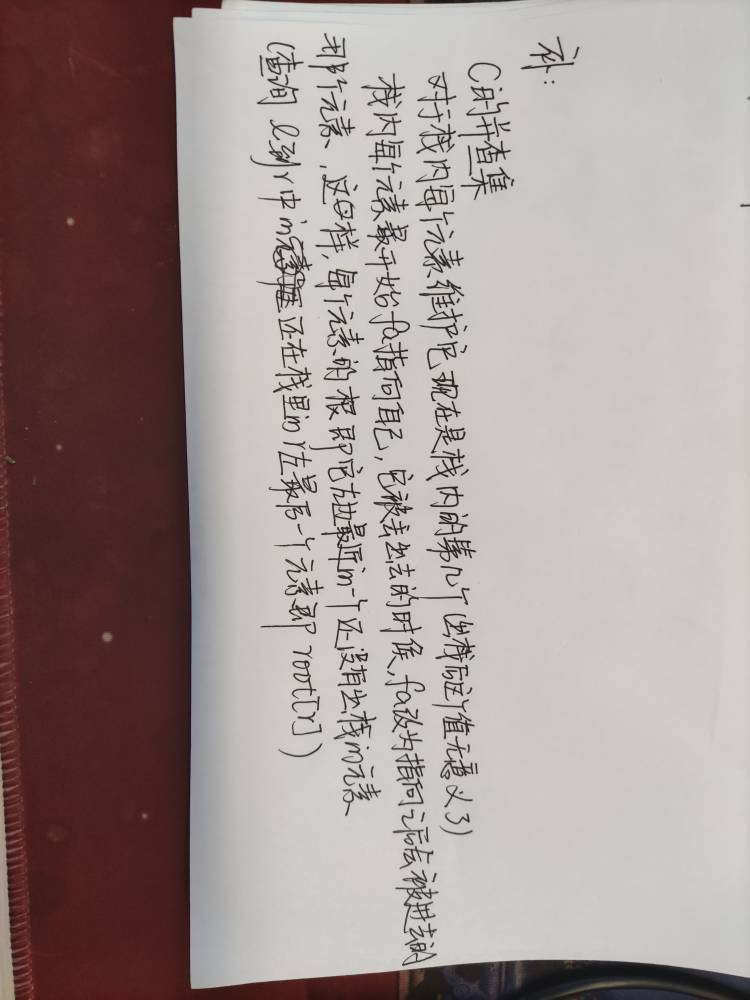 补：
C的并查集
对于栈内每个元素维护它现在是栈内的第几个(出栈后这个值无意义了)
栈内每个元素最开始fa指向自己，它被去出去的时候，fa改为指向之后会被进去的
那个元素，这样，每个元素的根即它左边最近的一个还没有出栈的元素
(查询 l到r中的还在栈里的r左最后一个元素即 root[r])